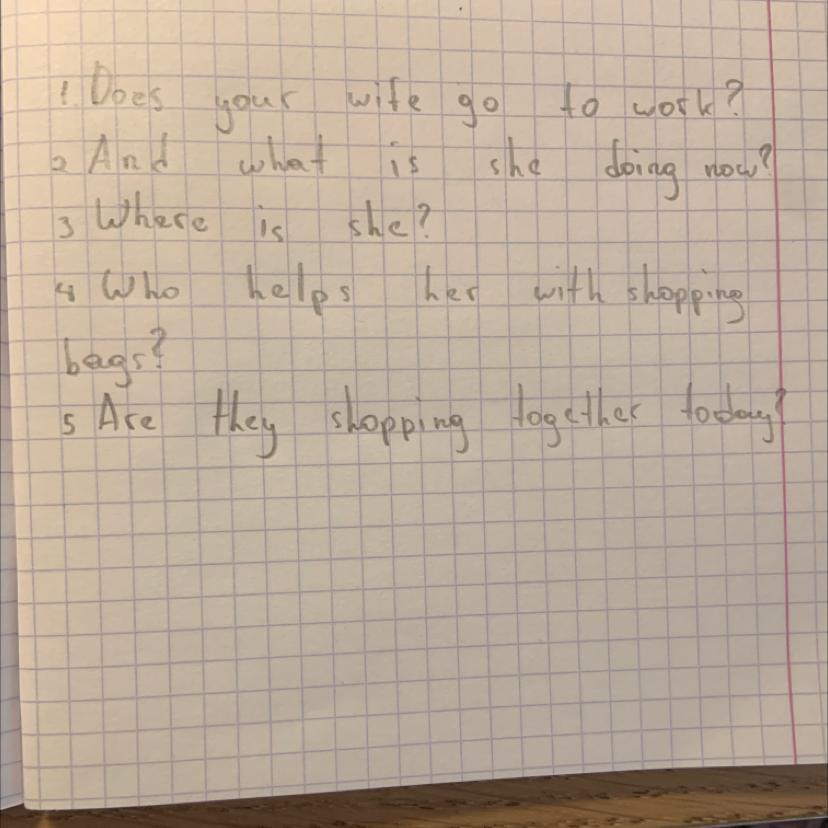 1. Does your wife go to work?
2 And what is she doing now?
3 Where is she?
4 Who helps her with shopping
bags?
5 Are they shopping together today?